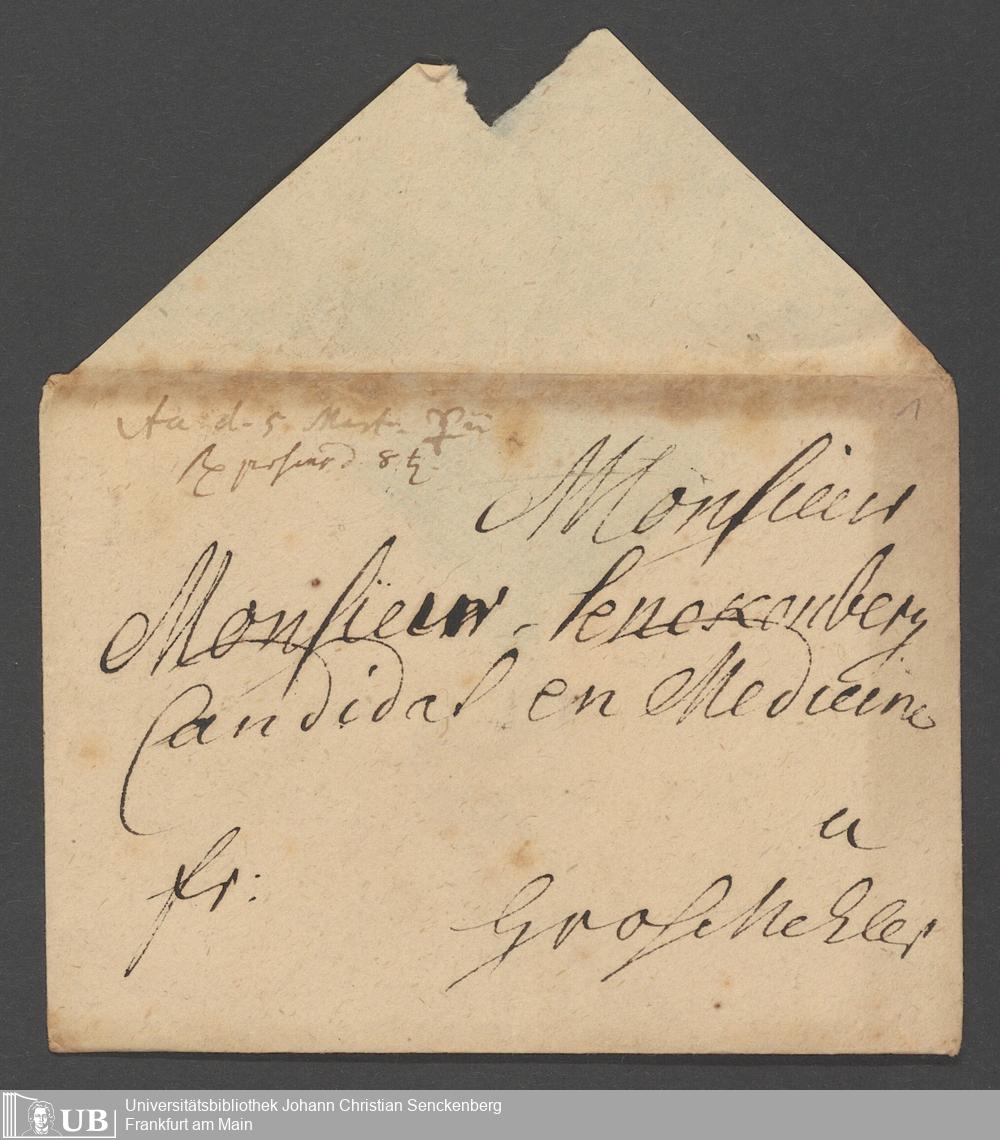 d. 5. Mart.
8
1
Monsieur
Monsieur Senckenberg
Candidat en Medicine
a
fr:
UB Universitätsbibliothek Johann Christian Senckenberg
Frankfurt am Main